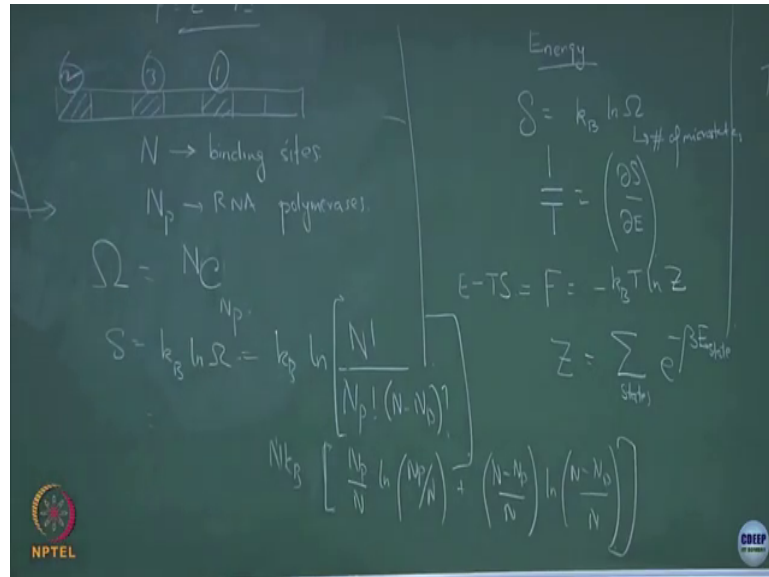 ② ③ ①
N → binding sites.
N_p → RNA polymerases.
Ω = ^N C_{N_p}.
S = k_B ln Ω = k_B ln [ N! / N_p! (N-N_p)! ]
=
Nk_B [ N_p/N ln (N_p/N) + (N-N_p / N) ln (N-N_p / N) ]
Energy
S = k_B ln Ω
↳ # of microstates
1/T = (∂S/∂E)
E-TS = F = -k_B T ln Z
Z = Σ_{states} e^{-βE_{state}}
NPTEL
CDEEP
IIT BOMBAY